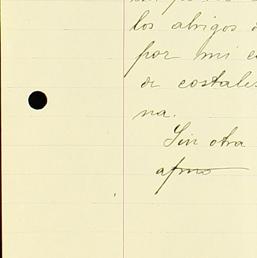 los abrigos
por mi
de costales
na.
Sin otra
apmo